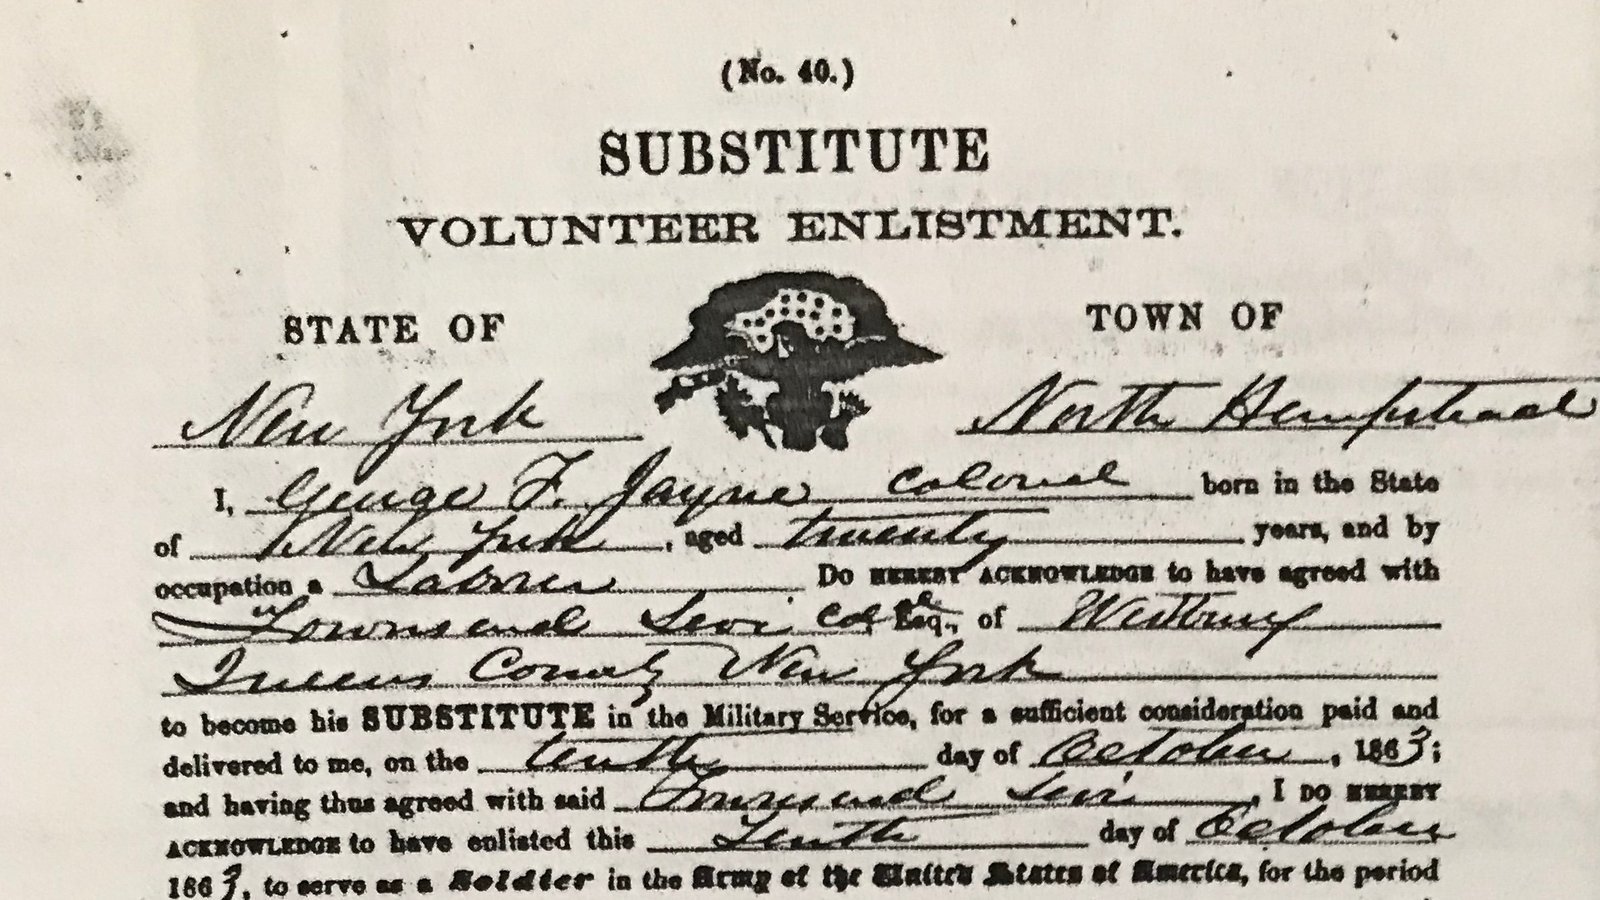 (No. 40.)
SUBSTITUTE
VOLUNTEER ENLISTMENT.
STATE OF TOWN OF
New York North Hempstead
I, George F. Jayne colored born in the State
of New York, aged twenty years, and by
occupation a Laborer DO HEREBY ACKNOWLEDGE to have agreed with
Townsend Levi Esq., of Westbury
Queens County New York
to become his SUBSTITUTE in the Military Service, for a sufficient consideration paid and
delivered to me, on the tenth day of October, 1863;
and having thus agreed with said Townsend Levi, I DO HEREBY
ACKNOWLEDGE to have enlisted this Tenth day of October
1863, to serve as a Soldier in the Army of the United States of America, for the period